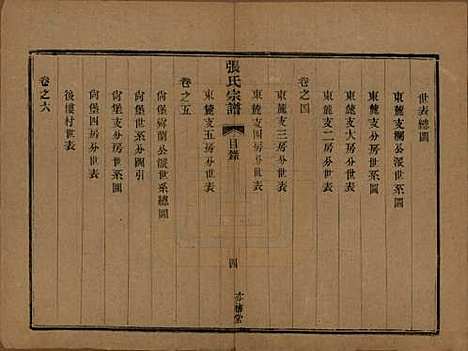 世表總圖
東麓支欄公派世系圖
東麓支分房世系圖
東麓支大房分世表
東麓支二房分世表
卷之四
東麓支三房分世表
東麓支四房分世表
張氏宗譜
目錄
四
亦禧堂
東麓支五房分世表
卷之五
尙堡公派世系總圖
尙堡世系分圖引
尙堡支分房世系圖
尙堡四房分世表
後樓村世表
卷之六